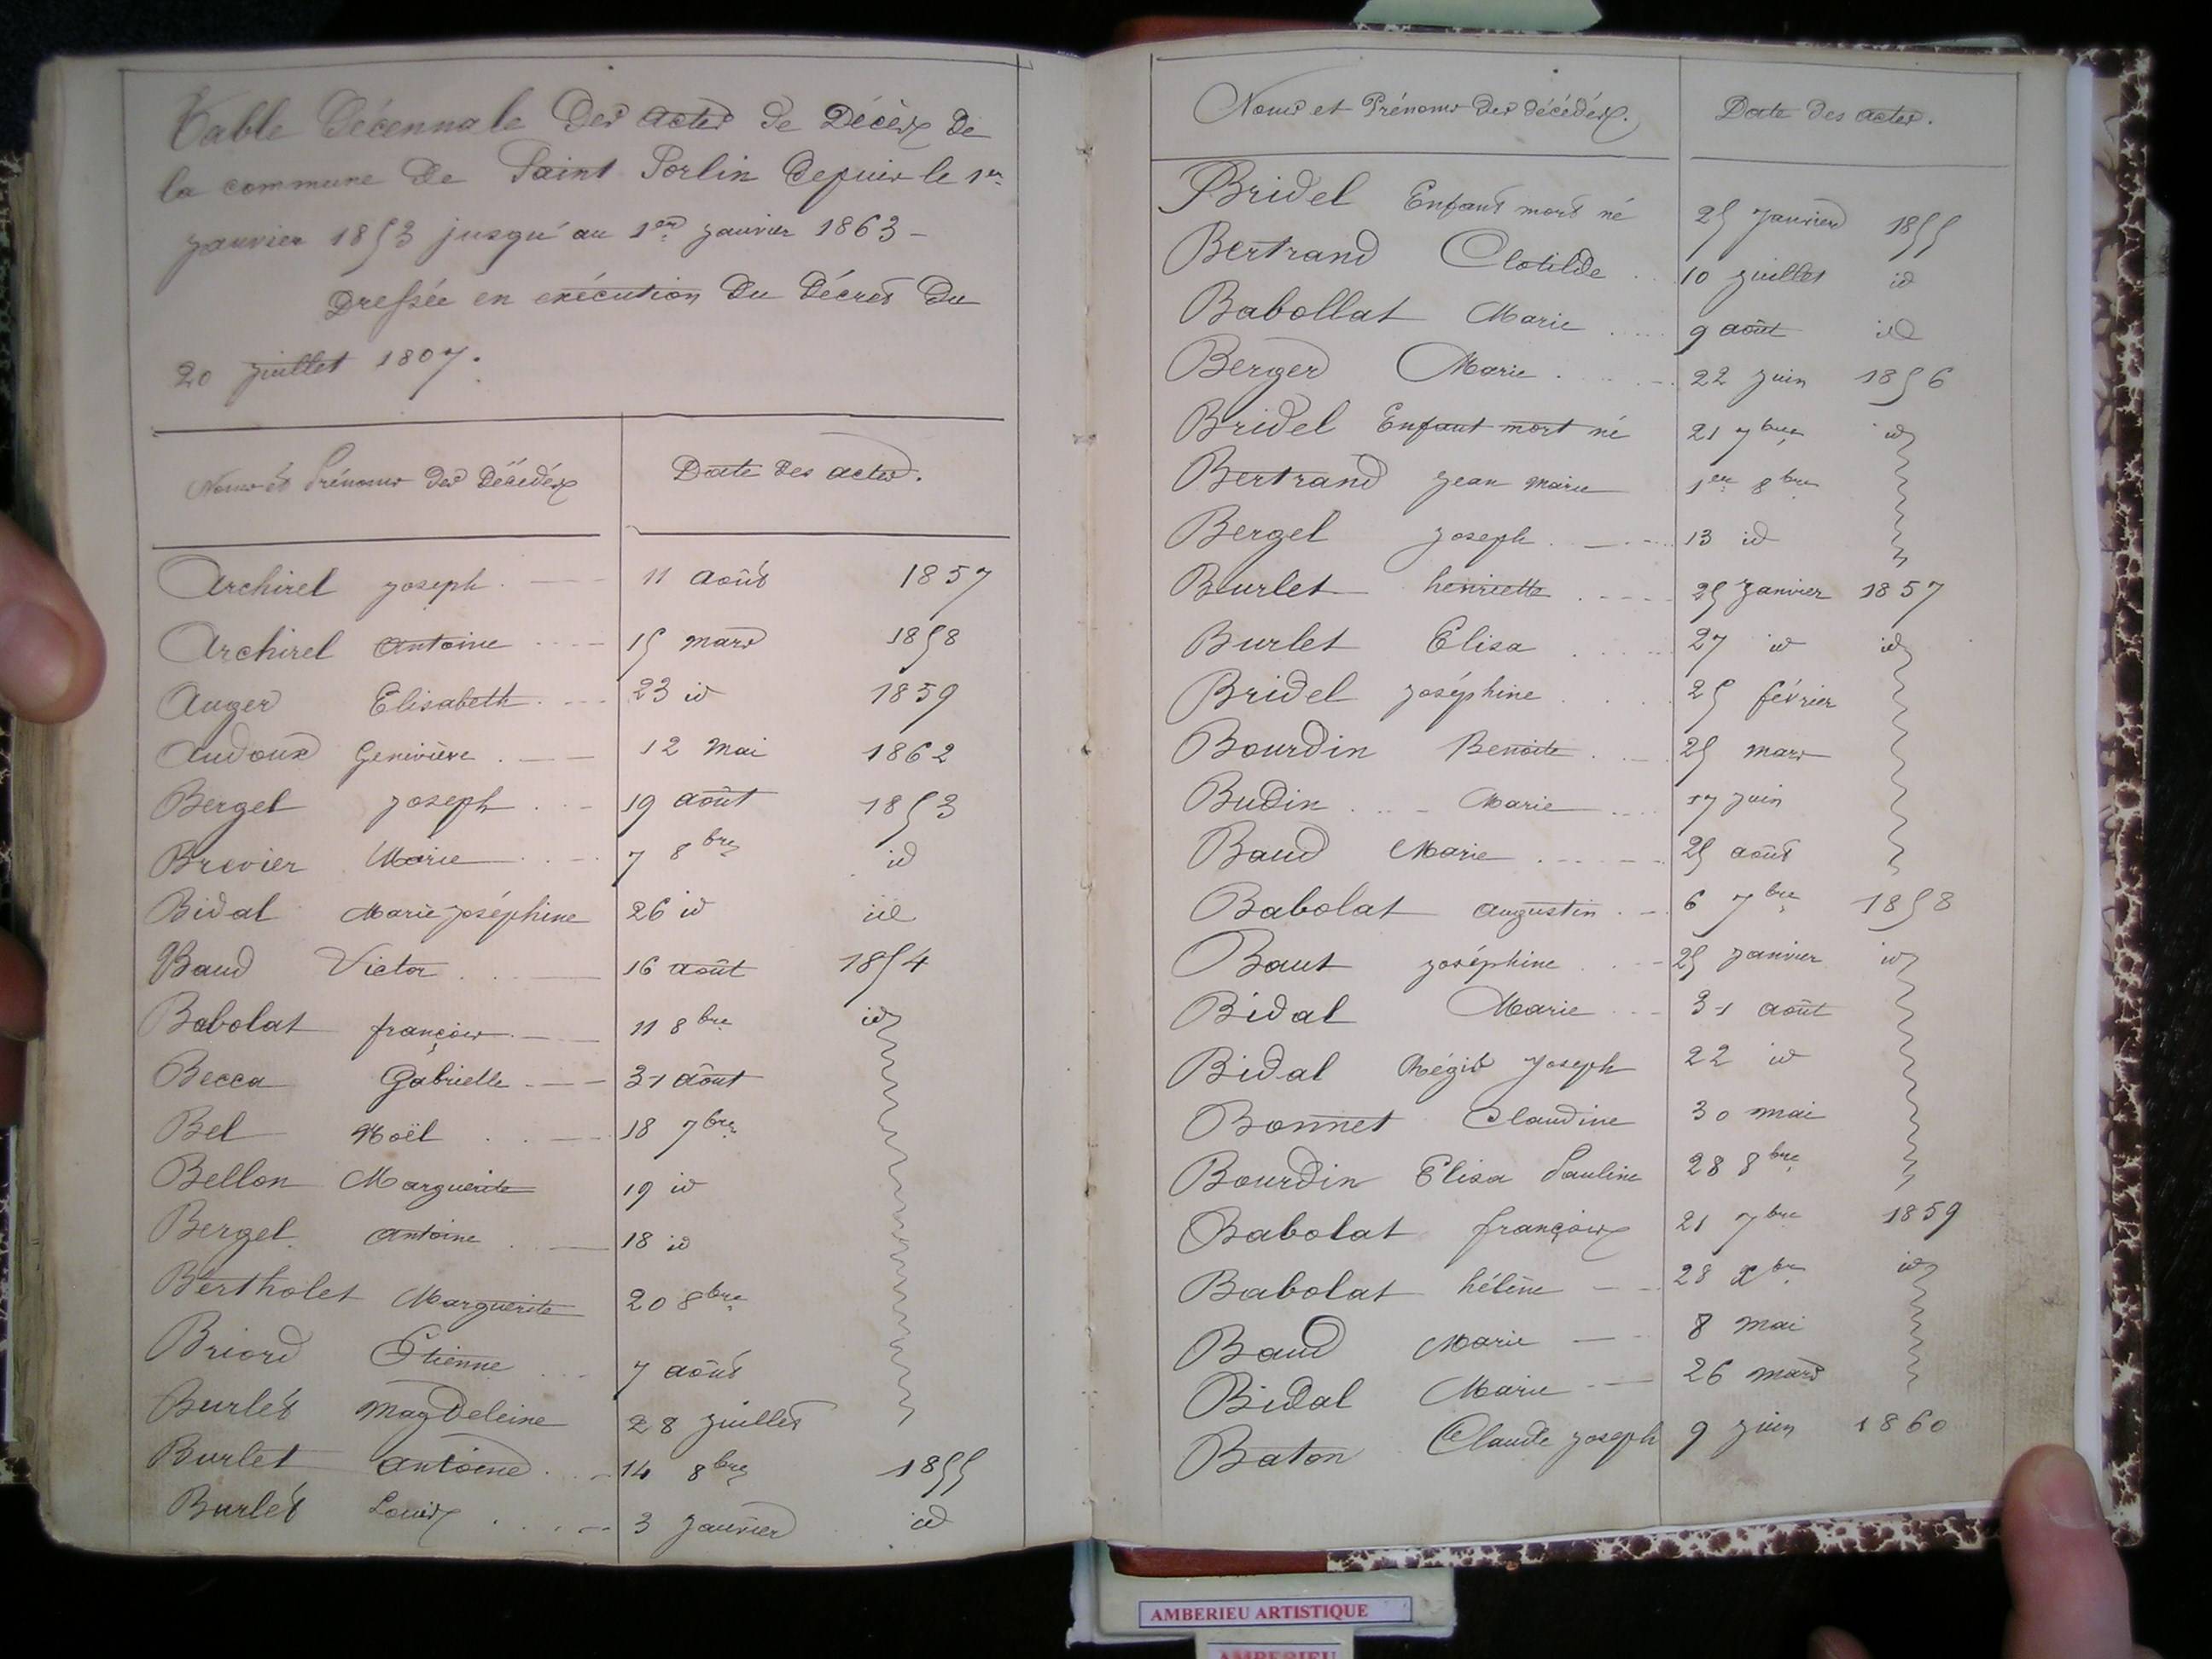 Table Décennale des actes de Décès de
la commune de Saint Sorlin depuis le 1er
janvier 1853 jusqu'au 1er janvier 1863 -
Dressée en exécution du Décret du
20 juillet 1807.
Noms et Prénoms des Décédés Date des actes.
Archirel joseph 11 août 1857
Archirel antoine 15 mars 1858
Auger Elisabeth 23 id 1859
Audoux Genivière 12 mai 1862
Bergel joseph 19 août 1853
Brevier Marie 7 8bre id
Bidal Marie joséphine 26 id id
Baud Victor 16 août 1854
Babolat françois 11 8bre id
Becca Gabrielle 31 août
Bel Noël 18 7bre
Bellon Marguerite 19 id
Bergel antoine 18 id
Bertholet Marguerite 20 8bre
Briord Etienne 7 août
Burlet magdeleine 28 juillet
Burlet antoine 14 8bre 1855
Burlet Louis 3 janvier id
Noms et Prénoms des décédés. Date des actes.
Bridel Enfant mort né 25 janvier 1855
Bertrand Clotilde 10 juillet id
Babollat Marie 9 août id
Berger Marie 22 juin 1856
Bridel Enfant mort né 21 7bre id
Bertrand jean marie 1er 8bre
Bergel joseph 13 id
Burlet henriette 25 janvier 1857
Burlet Elisa 27 id id
Bridel joséphine 25 février
Bourdin Benoite 25 mars
Budin Marie 17 juin
Baud Marie 25 août
Babolat augustin 6 7bre 1858
Baut joséphine 25 janvier id
Bidal Marie 31 août
Bidal Régis joseph 22 id
Bonnet Claudine 30 mai
Bourdin Elisa Pauline 28 8bre
Babolat françois 21 7bre 1859
Babolat hélène 28 Xbre id
Baud Marie 8 mai
Bidal Marie 26 mars
Baton Claude joseph 9 juin 1860
AMBERIEU ARTISTIQUE
AMBERIEU